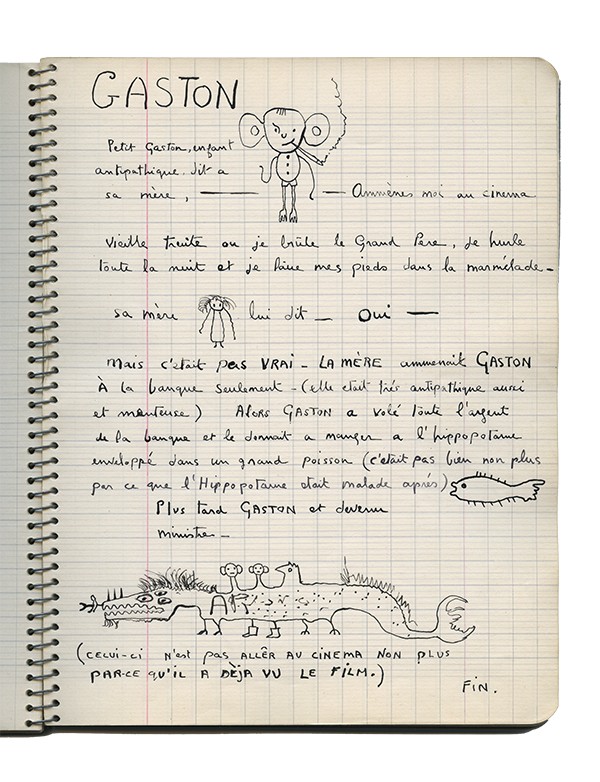 GASTON
Petit Gaston, enfant
antipathique, dit a
sa mère, — — Ammènes moi au cinema
Vieille truite ou je brûle le Grand Père, je hurle
toute la nuit et je lave mes pieds dans la marmelade -
sa mère lui dit — Oui —
Mais c'était pas VRAI - LA MÈRE ammenait GASTON
À la banque seulement - (elle etait très antipathique aussi
et menteuse) Alors GASTON a volé toute l'argent
de la banque et le donnait a manger a l'hippopotame
enveloppé dans un grand poisson (c'etait pas bien non plus
par ce que l'Hippopotame etait malade après)
Plus tard GASTON et devenu
ministre -
(CELUI-CI N'EST PAS ALLÊR AU CINEMA NON PLUS
PAR-CE QU'IL A DÈJA VU LE FILM.)
FIN.